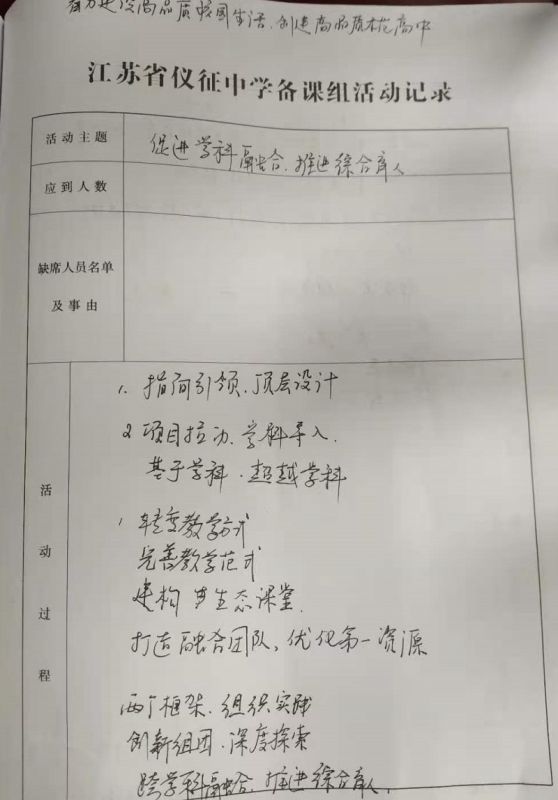 着力建设高品质校园生活、创建高品质示范高中
江苏省仪征中学备课组活动记录
活动主题
促进学科融合、推进综合育人
应到人数
缺席人员名单
及事由
活动过程
1. 指向引领、顶层设计
2 项目拉动、学科导入.
基于学科·超越学科
1 转变教学方式
完善教学范式
建构 生态课堂.
打造融合团队、优化第一资源
两个框架、组织实践
创新组团、深度探索
跨学科融合、推进综合育人.